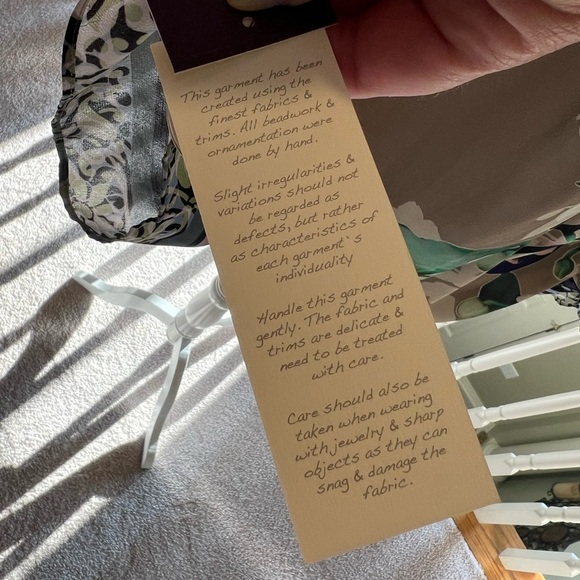 This garment has been
created using the
finest fabrics &
trims. All beadwork &
ornamentation were
done by hand.
Slight irregularities &
variations should not
be regarded as
defects, but rather
as characteristics of
each garment`s
individuality
Handle this garment
gently. The fabric and
trims are delicate &
need to be treated
with care.
Care should also be
taken when wearing
with jewelry & sharp
objects as they can
snag & damage the
fabric.